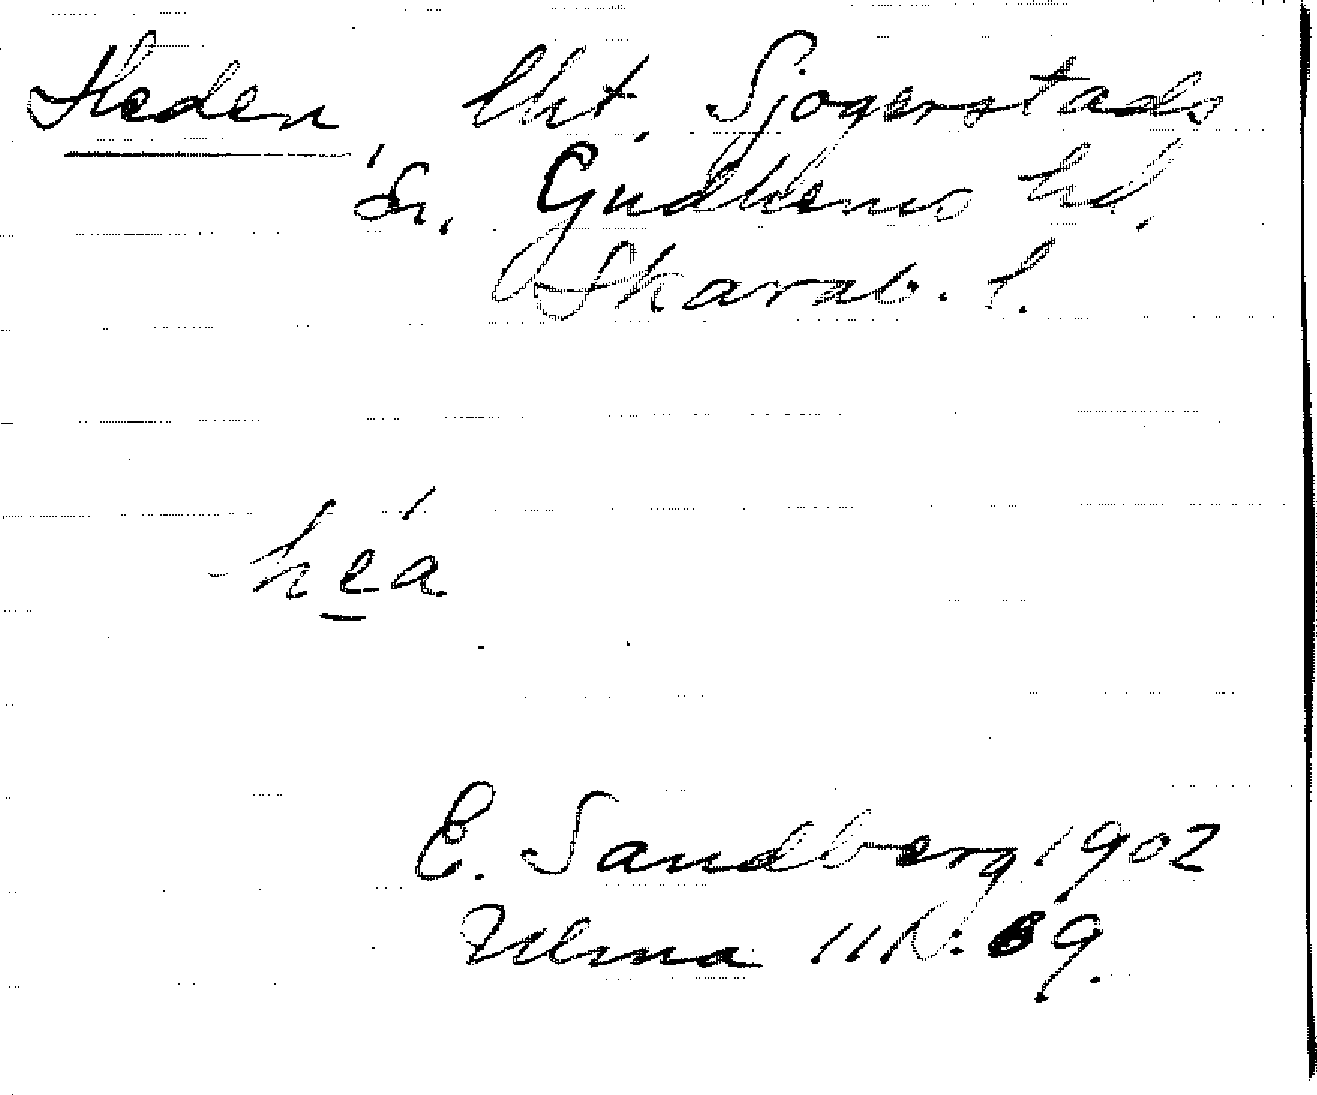 Heden, lht. Sjogerstads
sn. Gudhems hd.
Skarab. l.
heá
E. Sandberg 1902
Ulma 111: 69.